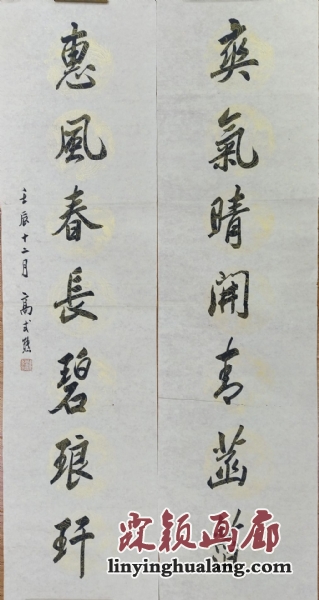 爽氣晴開青菡萏
惠風春長碧琅玕
壬辰十二月 高式熊
霖颖画廊
linyinghualang.com